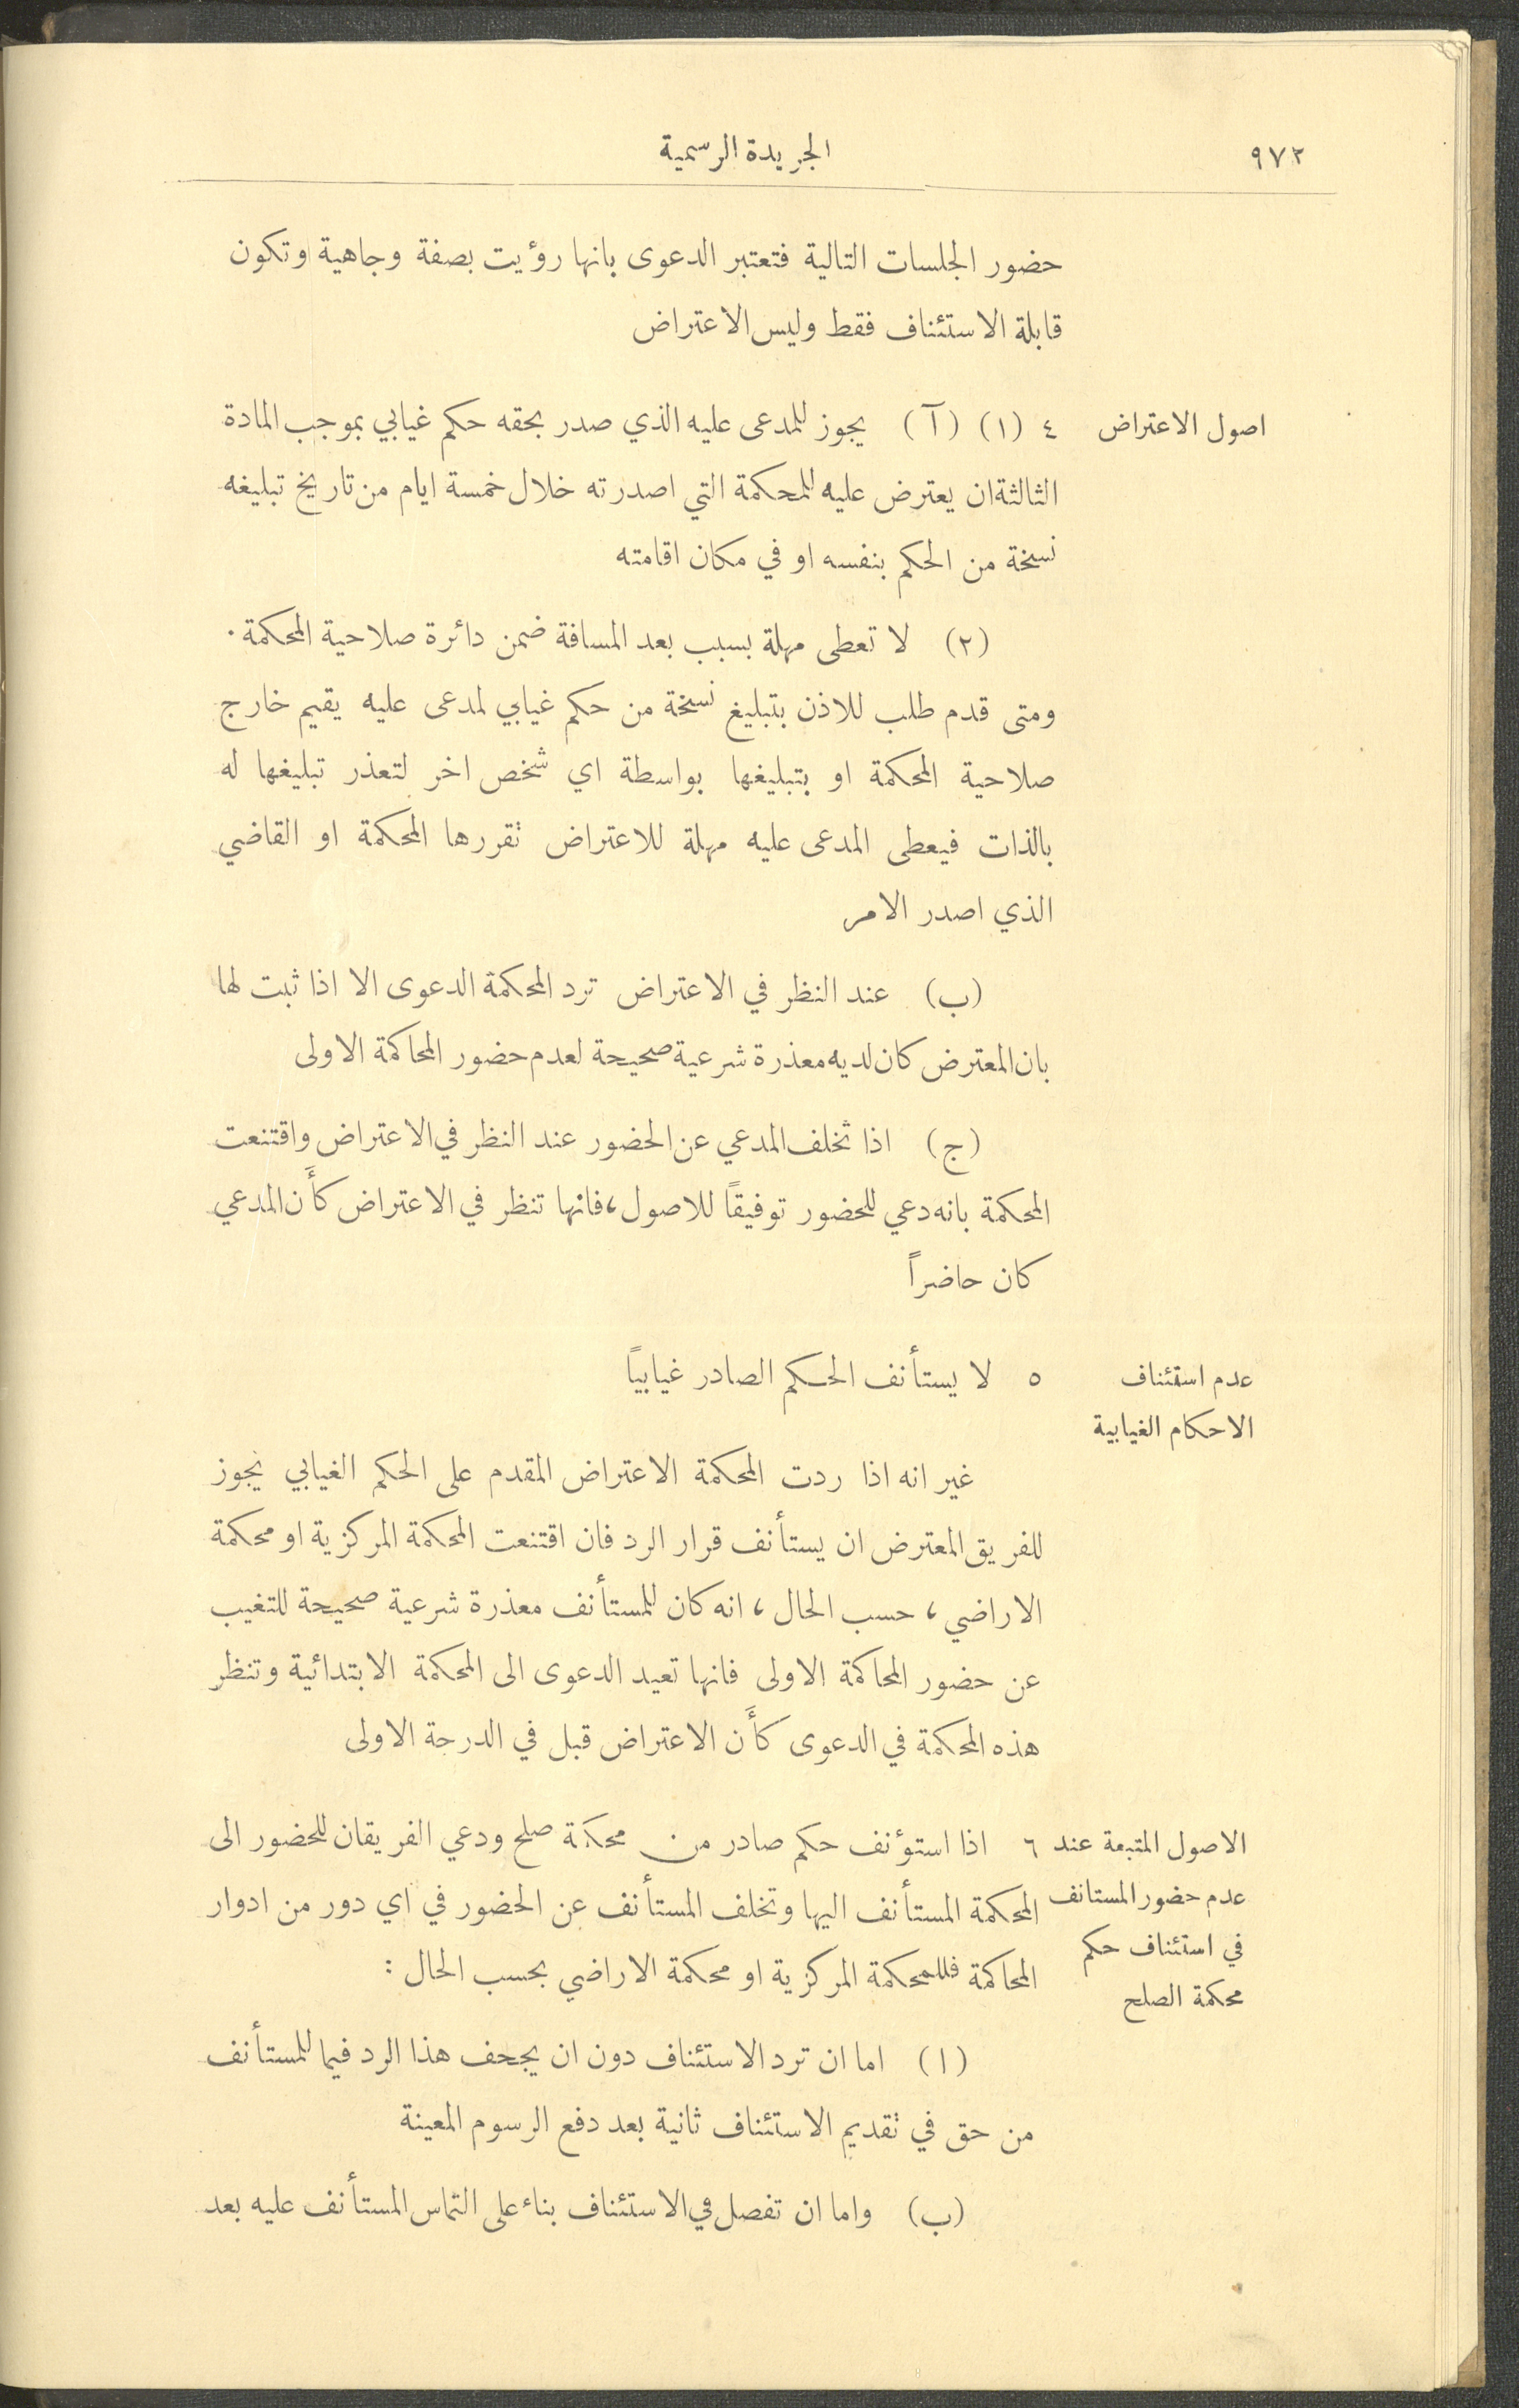 ٩٧٢
الجريدة الرسمية
حضور الجلسات التالية فتعتبر الدعوى بانها رؤيت بصفة وجاهية وتكون
قابلة الاستئناف فقط وليس الاعتراض
اصول الاعتراض
٤ (١) (آ) يجوز للمدعى عليه الذي صدر بحقه حكم غيابي بموجب المادة
الثالثة ان يعترض عليه للمحكمة التي اصدرته خلال خمسة ايام من تاريخ تبليغه
نسخة من الحكم بنفسه او في مكان اقامته
(٢) لا تعطى مهلة بسبب بعد المسافة ضمن دائرة صلاحية المحكمة.
ومتى قدم طلب للاذن بتبليغ نسخة من حكم غيابي لمدعى عليه يقيم خارج
صلاحية المحكمة او بتبليغها بواسطة اي شخص اخر لتعذر تبليغها له
بالذات فيعطى المدعى عليه مهلة للاعتراض تقررها المحكمة او القاضي
الذي اصدر الامر
(ب) عند النظر في الاعتراض ترد المحكمة الدعوى الا اذا ثبت لها
بان المعترض كان لديه معذرة شرعية صحيحة لعدم حضور المحاكمة الاولى
(ج) اذا تخلف المدعي عن الحضور عند النظر في الاعتراض واقتنعت
المحكمة بانه دعي للحضور توفيقاً للاصول، فانها تنظر في الاعتراض كأَن المدعي
كان حاضراً
عدم استئناف
الاحكام الغيابية
٥ لا يستأنف الحكم الصادر غيابياً
غير انه اذا ردت المحكمة الاعتراض المقدم على الحكم الغيابي يجوز
للفريق المعترض ان يستأنف قرار الرد فان اقتنعت المحكمة المركزية او محكمة
الاراضي، حسب الحال، انه كان للمستأنف معذرة شرعية صحيحة للتغيب
عن حضور المحاكمة الاولى فانها تعيد الدعوى الى المحكمة الابتدائية وتنظر
هذه المحكمة في الدعوى كأَن الاعتراض قبل في الدرجة الاولى
الاصول المتبعة عند
عدم حضور المستانف
في استئناف حكم
محكمة الصلح
٦ اذا استؤنف حكم صادر من محكمة صلح ودعي الفريقان للحضور الى
المحكمة المستأنف اليها وتخلف المستأنف عن الحضور في اي دور من ادوار
المحاكمة فللمحكمة المركزية او محكمة الاراضي بحسب الحال :
(ا) اما ان ترد الاستئناف دون ان يجحف هذا الرد فيما للمستأنف
من حق في تقديم الاستئناف ثانية بعد دفع الرسوم المعينة
(ب) واما ان تفصل في الاستئناف بناء على التماس المستأنف عليه بعد